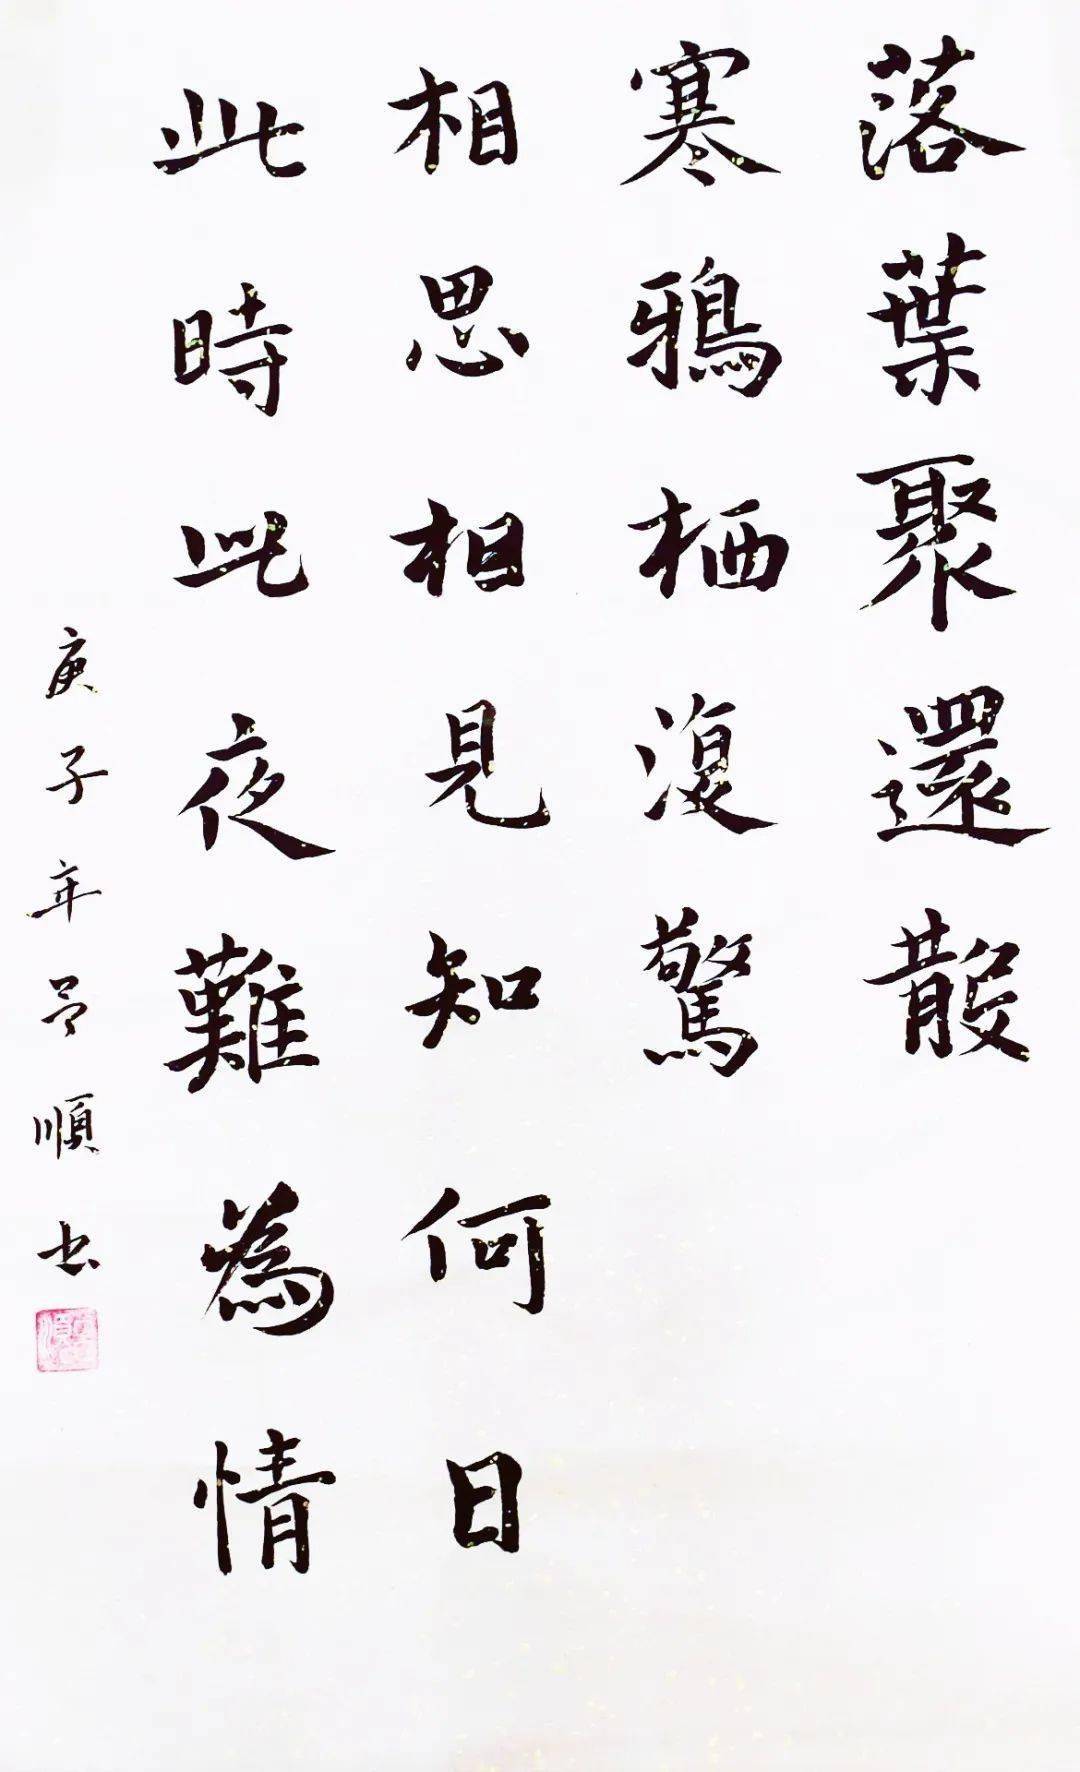 落葉聚還散
寒鴉栖復驚
相思相見知何日
此時此夜難為情
庚子年順书